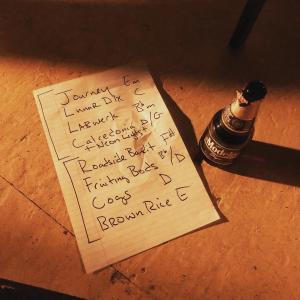 Journey Em
Lunar Dix C
LABwerk Bm
Calcedonia D/G
+ Neon Light
Roadside Bandit F#
Fruiting Bods B/D
Cogs D
BROWN RICE E
Modelo